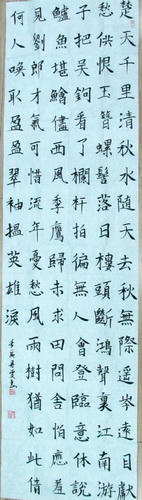 楚天千里清秋水隨天去秋無際遥岑遠目獻
愁供恨玉簪螺髻落日樓頭斷鴻聲裏江南游
子把吴鉤看了欄杆拍徧無人會登臨意休說
鱸魚堪鱠儘西風季鷹歸未求田問舍怕應羞
見劉郎才氣可惜流年憂愁風雨樹猶如此倩
何人唤取盈盈翠袖搵英雄淚